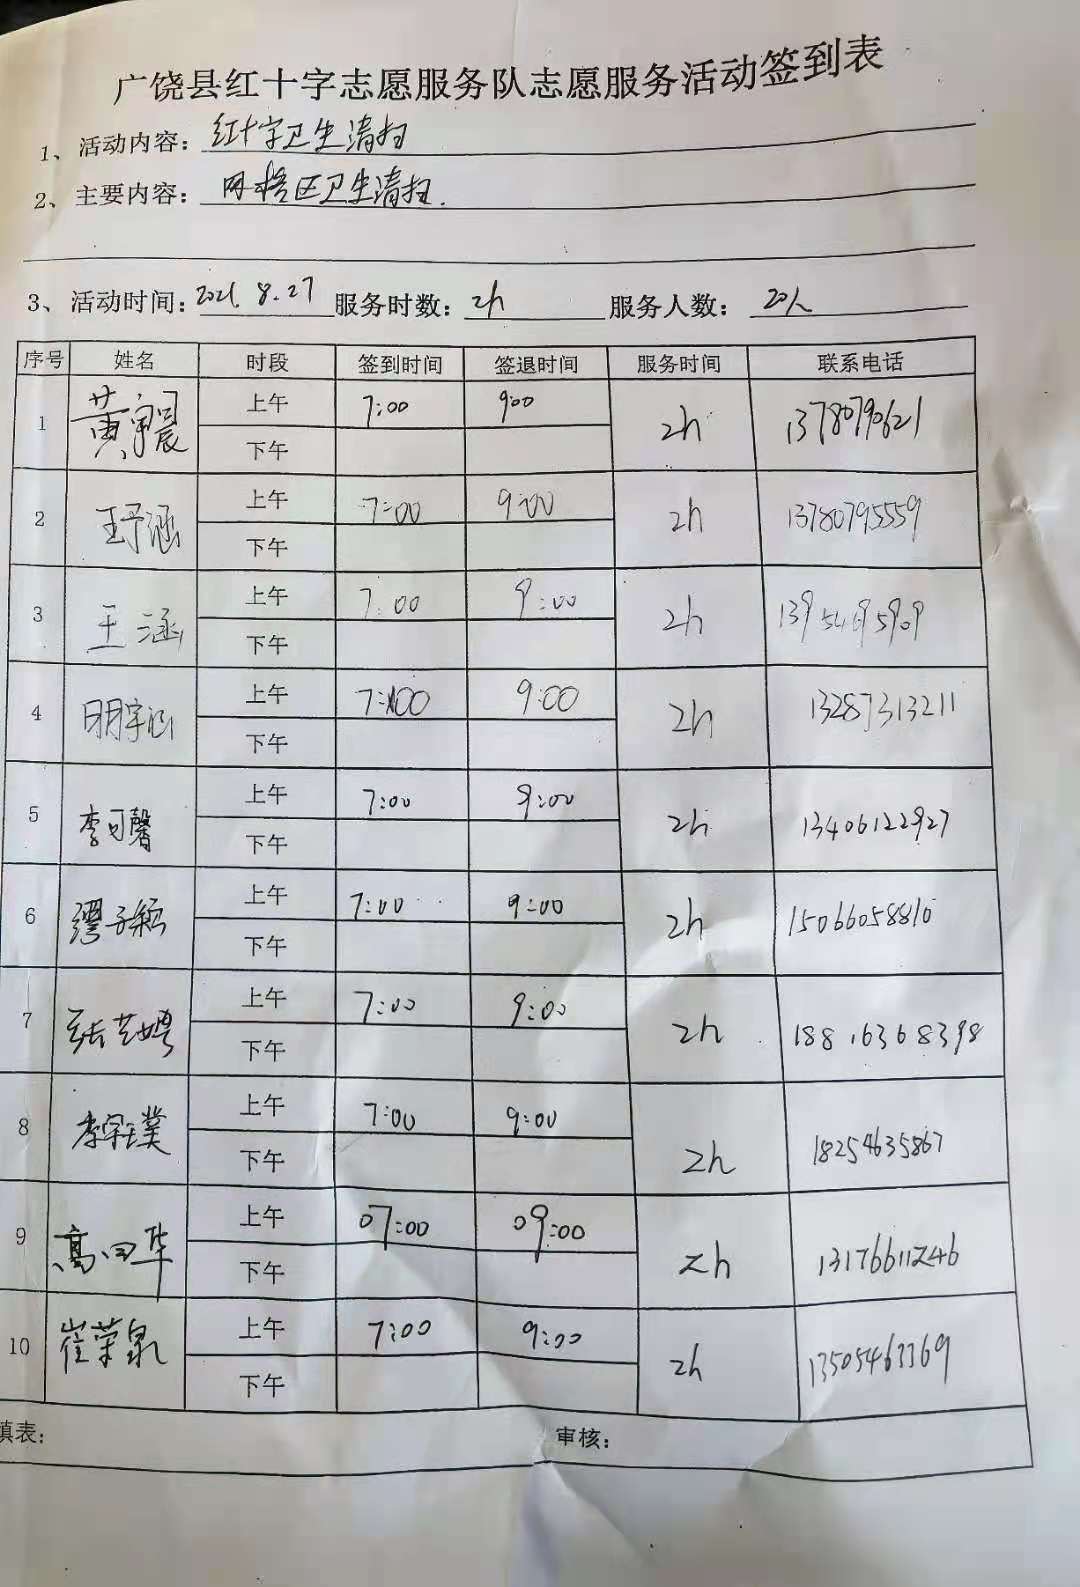 广饶县红十字志愿服务队志愿服务活动签到表
1、活动内容：红十字卫生清扫
2、主要内容：网格区卫生清扫.
3、活动时间：2021.8.27 服务时数：2h 服务人数：20人
序号 姓名 时段 签到时间 签退时间 服务时间 联系电话
1 黄宇晨 上午 7:00 9:00 2h 13780790621
下午
2 王予涵 上午 7:00 9:00 2h 13780795559
下午
3 王涵 上午 7:00 9:00 2h 13954695909
下午
4 明宇涵 上午 7:00 9:00 2h 13287313211
下午
5 李可馨 上午 7:00 9:00 2h 13406122927
下午
6 缪子颖 上午 7:00 9:00 2h 15066058810
下午
7 张艺娉 上午 7:00 9:00 2h 18816368398
下午
8 李宇璞 上午 7:00 9:00 2h 18254635867
下午
9 高曰华 上午 07:00 09:00 2h 13176611246
下午
10 崔荣泉 上午 7:00 9:00 2h 13505463369
下午
填表： 审核：